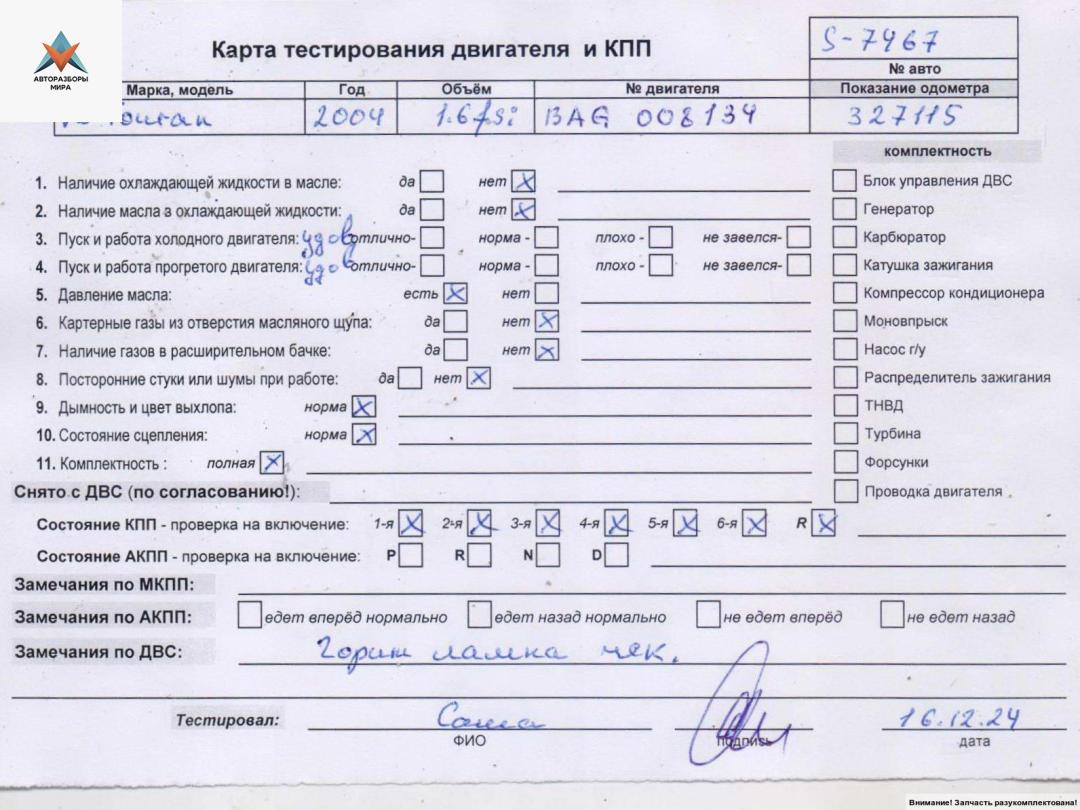 АВТОРАЗБОРЫ
МИРА
Карта тестирования двигателя и КПП
S-7467
№ авто
Марка, модель Год Объём № двигателя Показание одометра
Туран 2004 1.6 fsi BAG 008134 327115
комплектность
1. Наличие охлаждающей жидкости в масле: да нет X
Блок управления ДВС
2. Наличие масла в охлаждающей жидкости: да нет X
Генератор
3. Пуск и работа холодного двигателя: удов отлично- норма - плохо - не завелся-
Карбюратор
4. Пуск и работа прогретого двигателя: удов отлично- норма - плохо - не завелся-
Катушка зажигания
5. Давление масла: есть X нет
Компрессор кондиционера
6. Картерные газы из отверстия масляного щупа: да нет X
Моновпрыск
7. Наличие газов в расширительном бачке: да нет X
Насос г/у
8. Посторонние стуки или шумы при работе: да нет X
Распределитель зажигания
9. Дымность и цвет выхлопа: норма X
ТНВД
10. Состояние сцепления: норма X
Турбина
11. Комплектность : полная X
Форсунки
Снято с ДВС (по согласованию!):
Проводка двигателя
Состояние КПП - проверка на включение: 1-я X 2-я X 3-я X 4-я X 5-я X 6-я X R X
Состояние АКПП - проверка на включение: P R N D
Замечания по МКПП:
Замечания по АКПП: едет вперёд нормально едет назад нормально не едет вперёд не едет назад
Замечания по ДВС: Горит лампа чек.
Тестировал: Саша 16.12.24
ФИО подпись дата
Внимание! Запчасть разукомплектована!